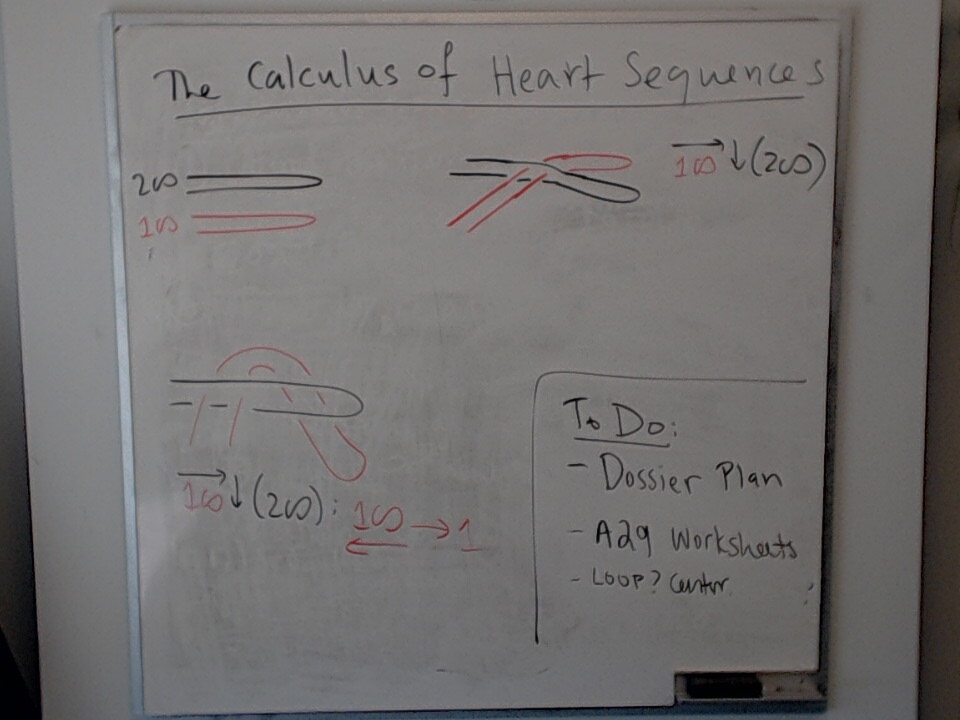 The Calculus of Heart Sequences
2∞
1∞
1∞↓(2∞)
1∞↓(2∞): 1∞→1
To Do:
- Dossier Plan
- A29 Worksheets
- LOOP? Center